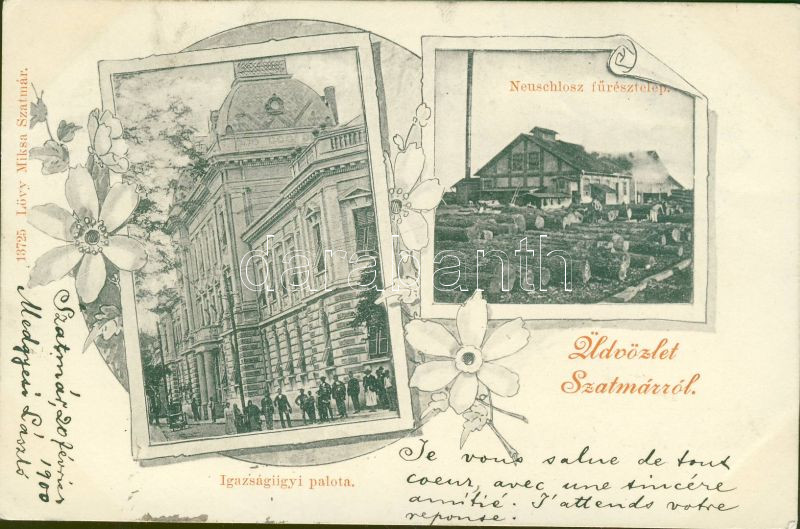 13725 Lövy Miksa Szatmár.
Neuschlosz fűrésztelep.
darabanth
Üdvözlet
Szatmárról.
Igazságügyi palota.
Szatmár, 20 février
1900
Medgyesi László
Je vous salue de tout
coeur, avec une sincére
amitié. J'attends votre
reponse.